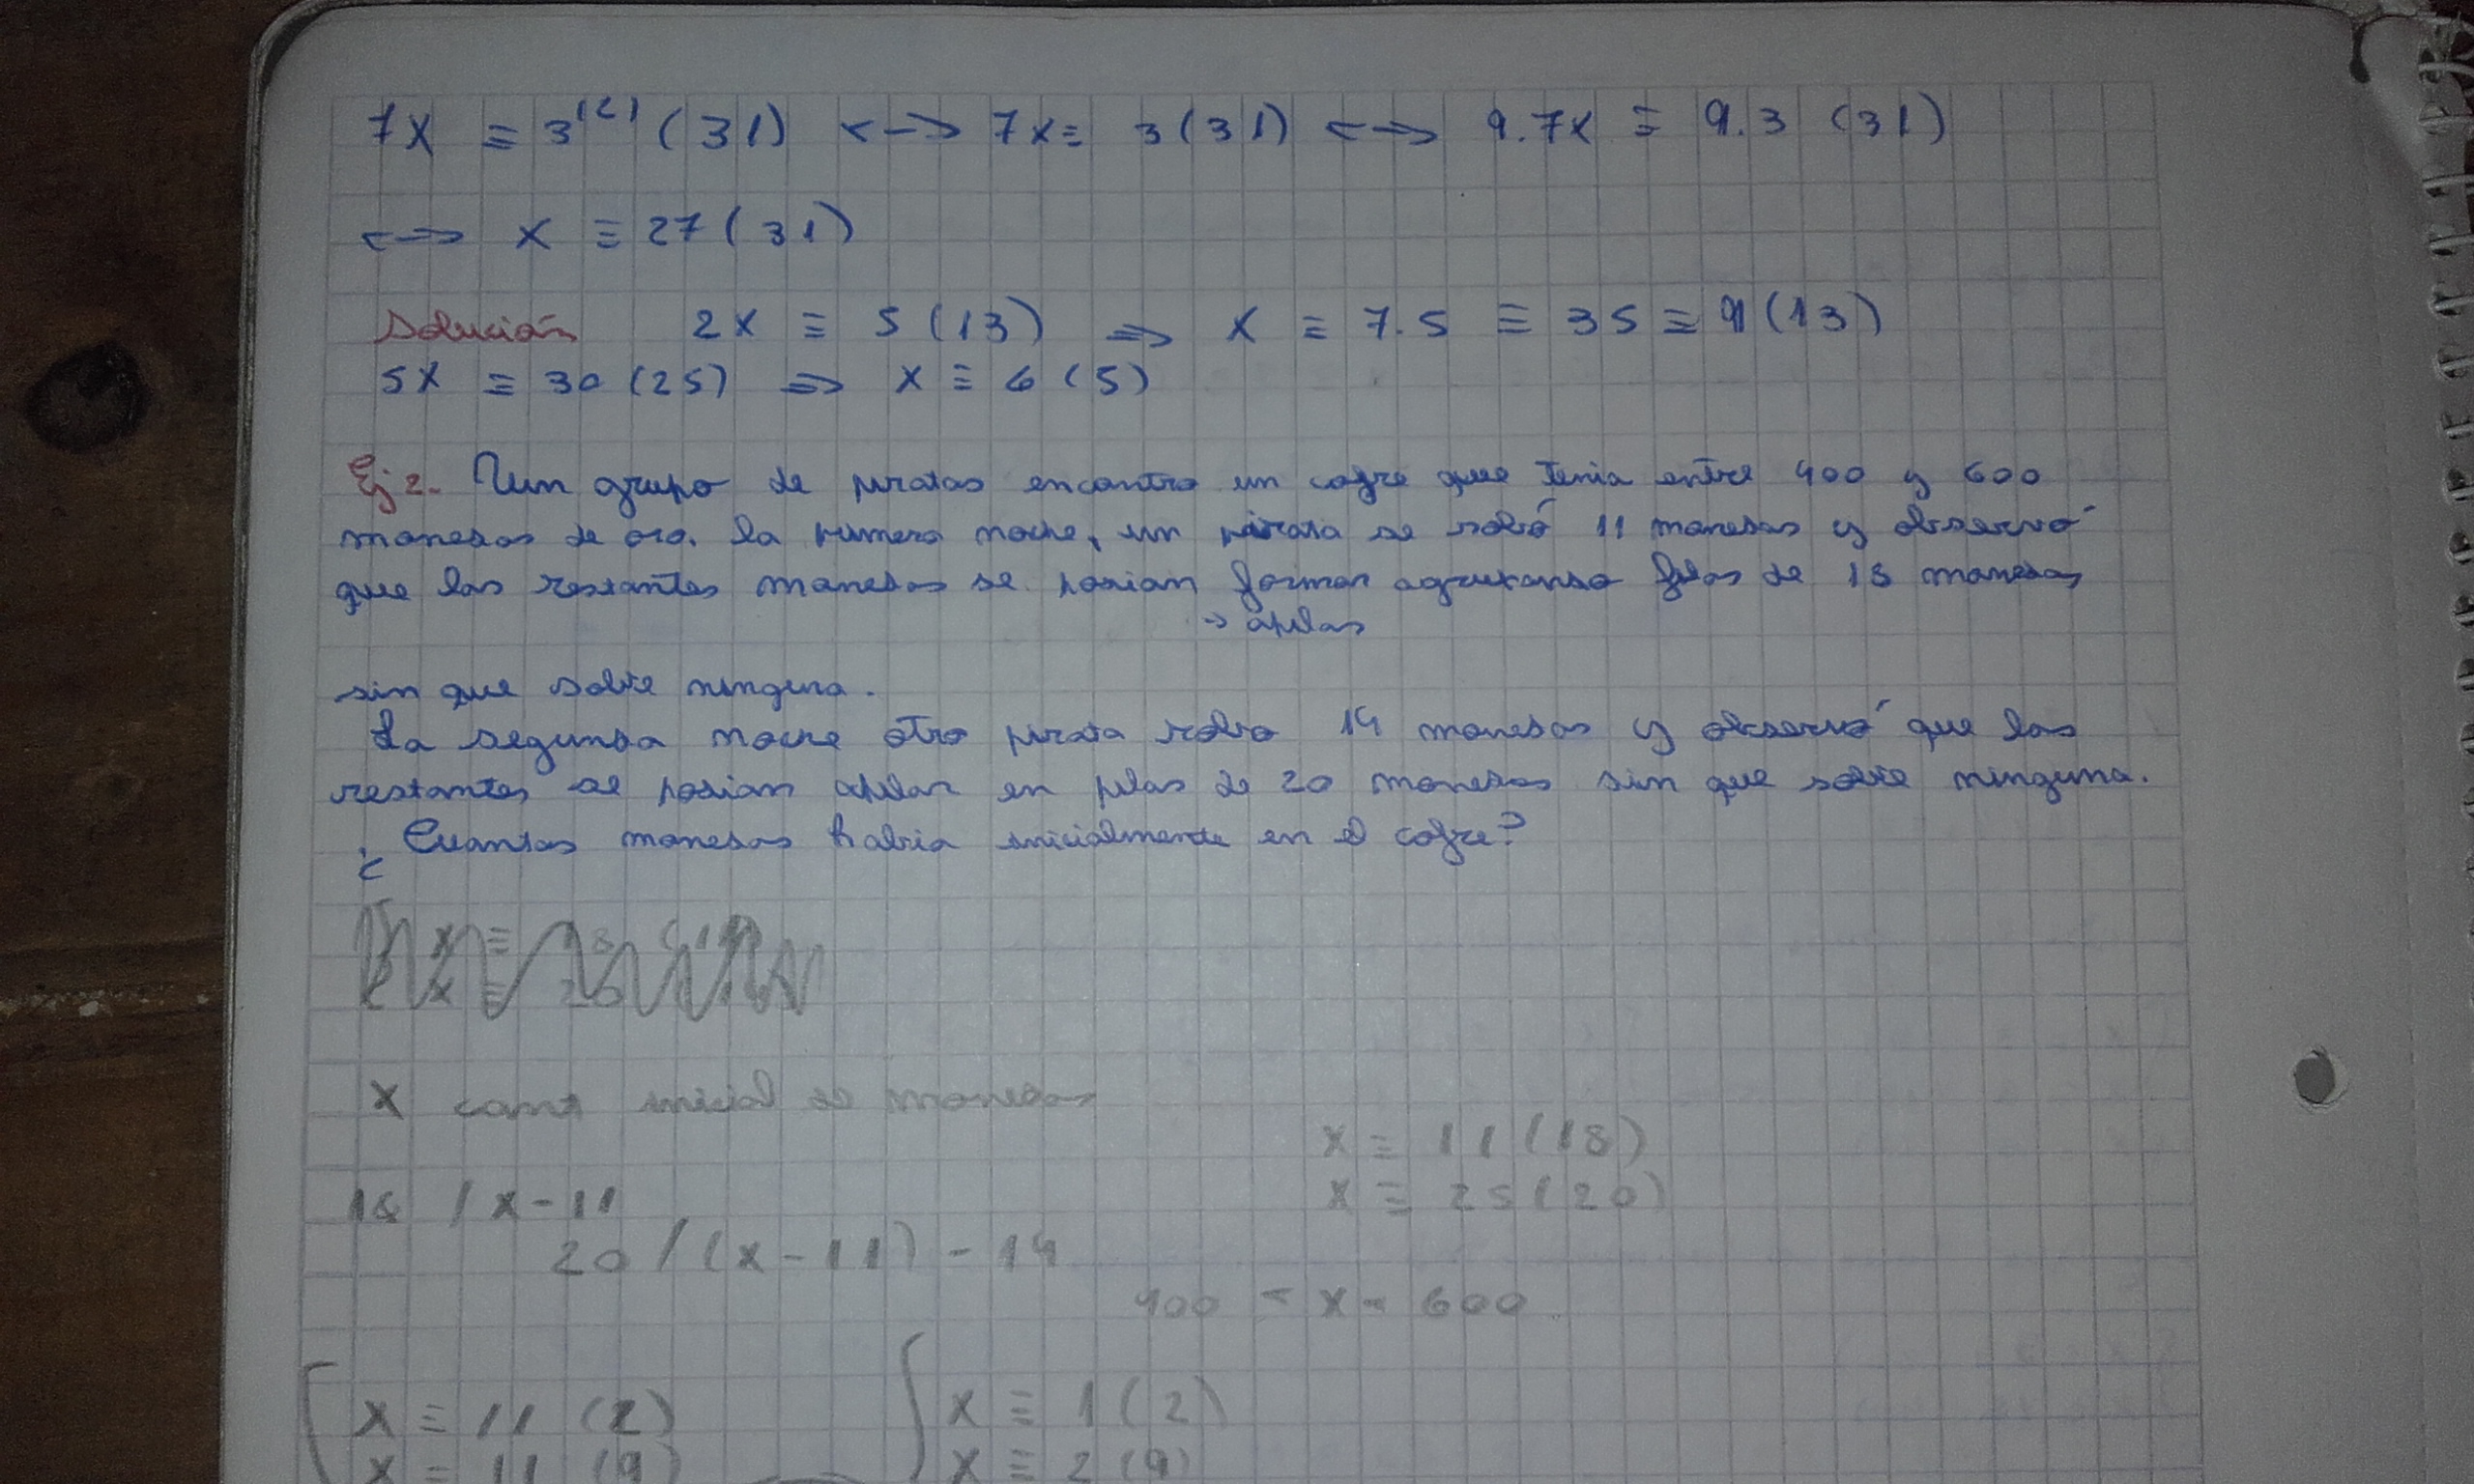 7x ≡ 3⁽²⁾ (31) <-> 7x ≡ 3 (31) <-> 9.7x ≡ 9.3 (31)
<=> x ≡ 27 (31)
Solución 2x ≡ 5 (13) => x ≡ 7.5 ≡ 35 ≡ 9 (13)
5x ≡ 30 (25) => x ≡ 6 (5)
Ej 2- Un grupo de piratas encontro un cofre que tenia entre 400 y 600
monedas de oro. la primera noche, un pirata se robó 11 monedas y observó
que las restantes monedas se podian formar agrupando filas de 18 monedas
=> apilas
sin que sobre ninguna.
La segunda noche otro pirata robo 14 monedas y observó que las
restantes se podian apilar en pilas de 20 monedas sin que sobre ninguna.
¿ Cuantas monedas habia inicialmente en el cofre?
x cant inicial de monedas
18 / x-11
20 / (x-11)-14
x ≡ 11 (18)
x ≡ 25 (20)
400 < x < 600
x ≡ 11 (2)
x ≡ 11 (9)
x ≡ 1 (2)
x ≡ 2 (9)